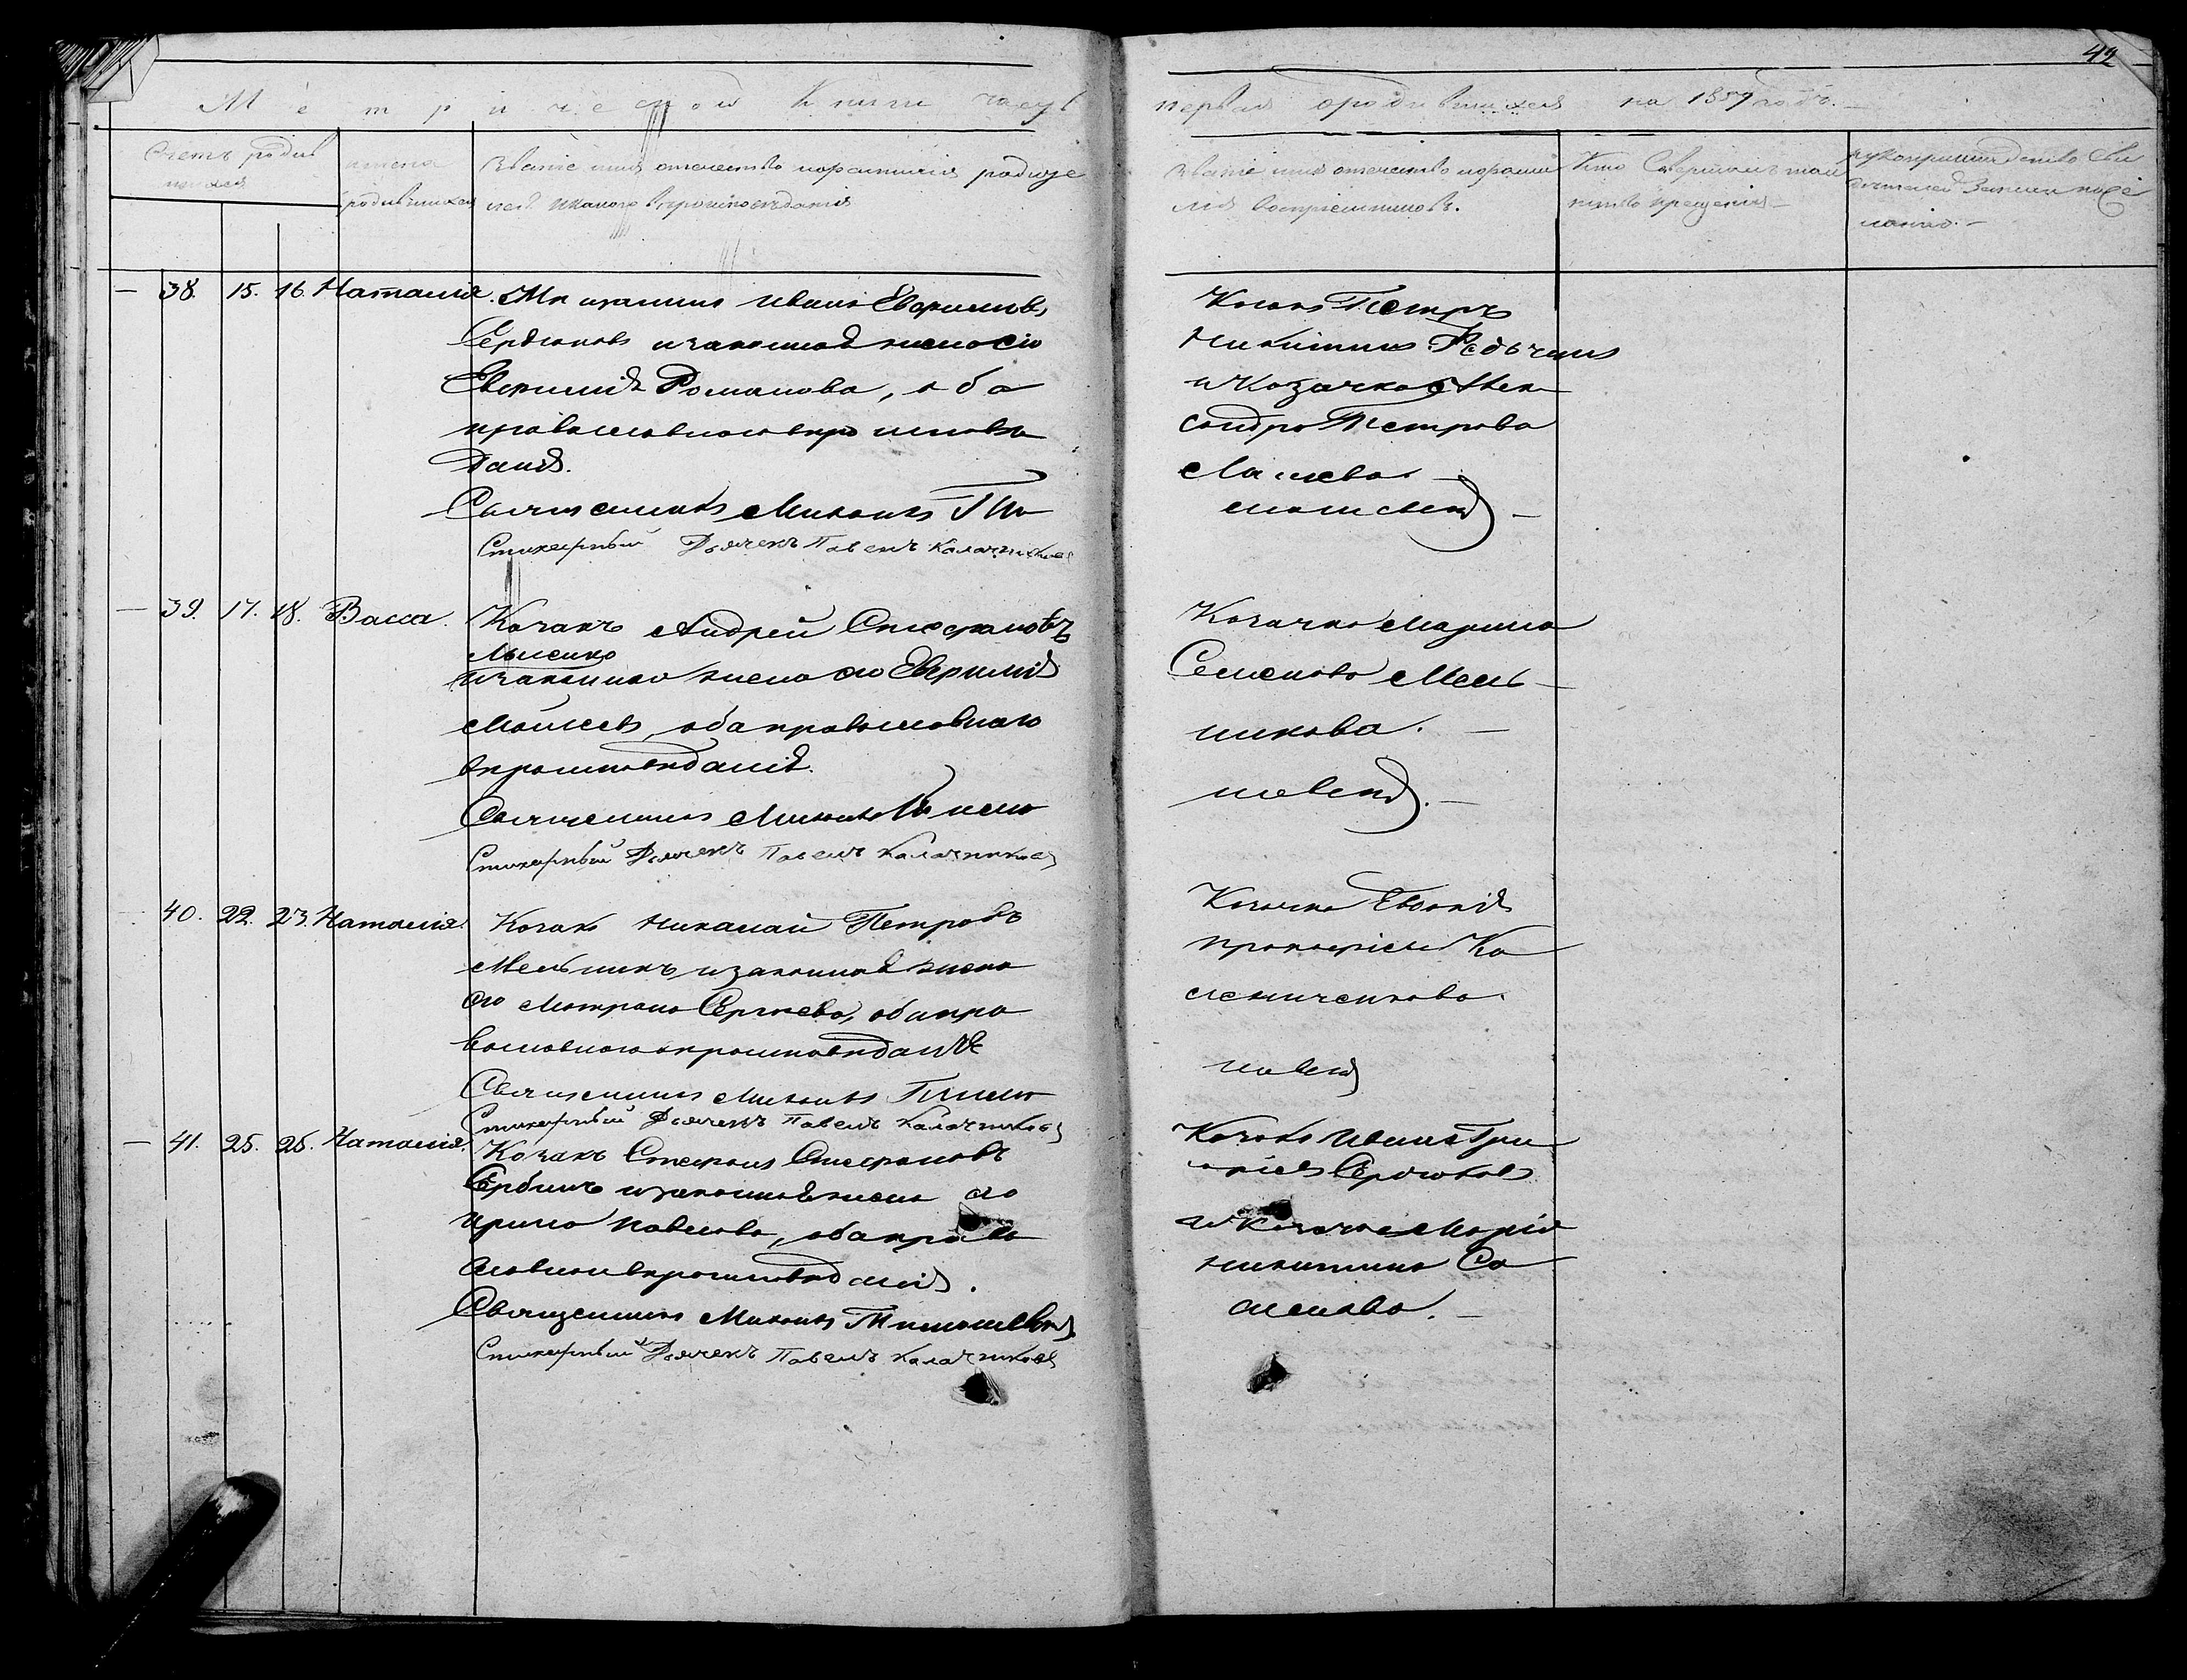 42
Метрической Книги часть первая о родившихся на 1859 годъ.
Счетъ родив
шихся
имена
родившихся
Званіе имя отечество и фамилія родите
лей и какого вѣроисповѣданія
Званіе имя отечество и фами
лія воспріемниковъ.
Кто Совершилъ таи
нство крещенія
рукоприкладство сви
дѣтелей записи по же
ланію.
38. 15. 16. Наталія.
Иванъ Евфимовъ
Сердюковъ и законная жена его
Евфимія Романова, оба
православнаго вѣроисповѣ
данія.
Священникъ Михаилъ Тим
Стихарный Дьячекъ Павелъ Калачниковъ
Козакъ Петръ
Никитинъ
и Козачка Алек
сандра Петрова
39. 17. 18. Васса.
Козакъ Андрей Стефановъ
Лысенко
и законная жена его Евфимія
оба православнаго
вѣроисповѣданія.
Священникъ Михаилъ Тимош
Стихарный Дьячекъ Павелъ Калачниковъ
Козачка Марина
Семенова Мель
никова.
шевскій.
40. 22. 23. Наталія.
Козакъ Николай Петровъ
Мельникъ и законная жена
его Матрона Сергѣева, оба пра
вославнаго вѣроисповѣданія
Священникъ Михаилъ Тимо
Стихарный Дьячекъ Павелъ Калачниковъ
Козачка Евдокія
Прокофіева Ко
41. 25. 26. Наталія.
Козакъ Стефанъ Стефановъ
Сербинъ и законная жена его
Ирина Павлова, оба право
славнаго вѣроисповѣданія.
Священникъ Михаилъ Тимошевскій
Стихарный Дьячекъ Павелъ Калачниковъ
Козакъ Иванъ Гри
Сердюковъ
и Козачка Марія
Никитина Са